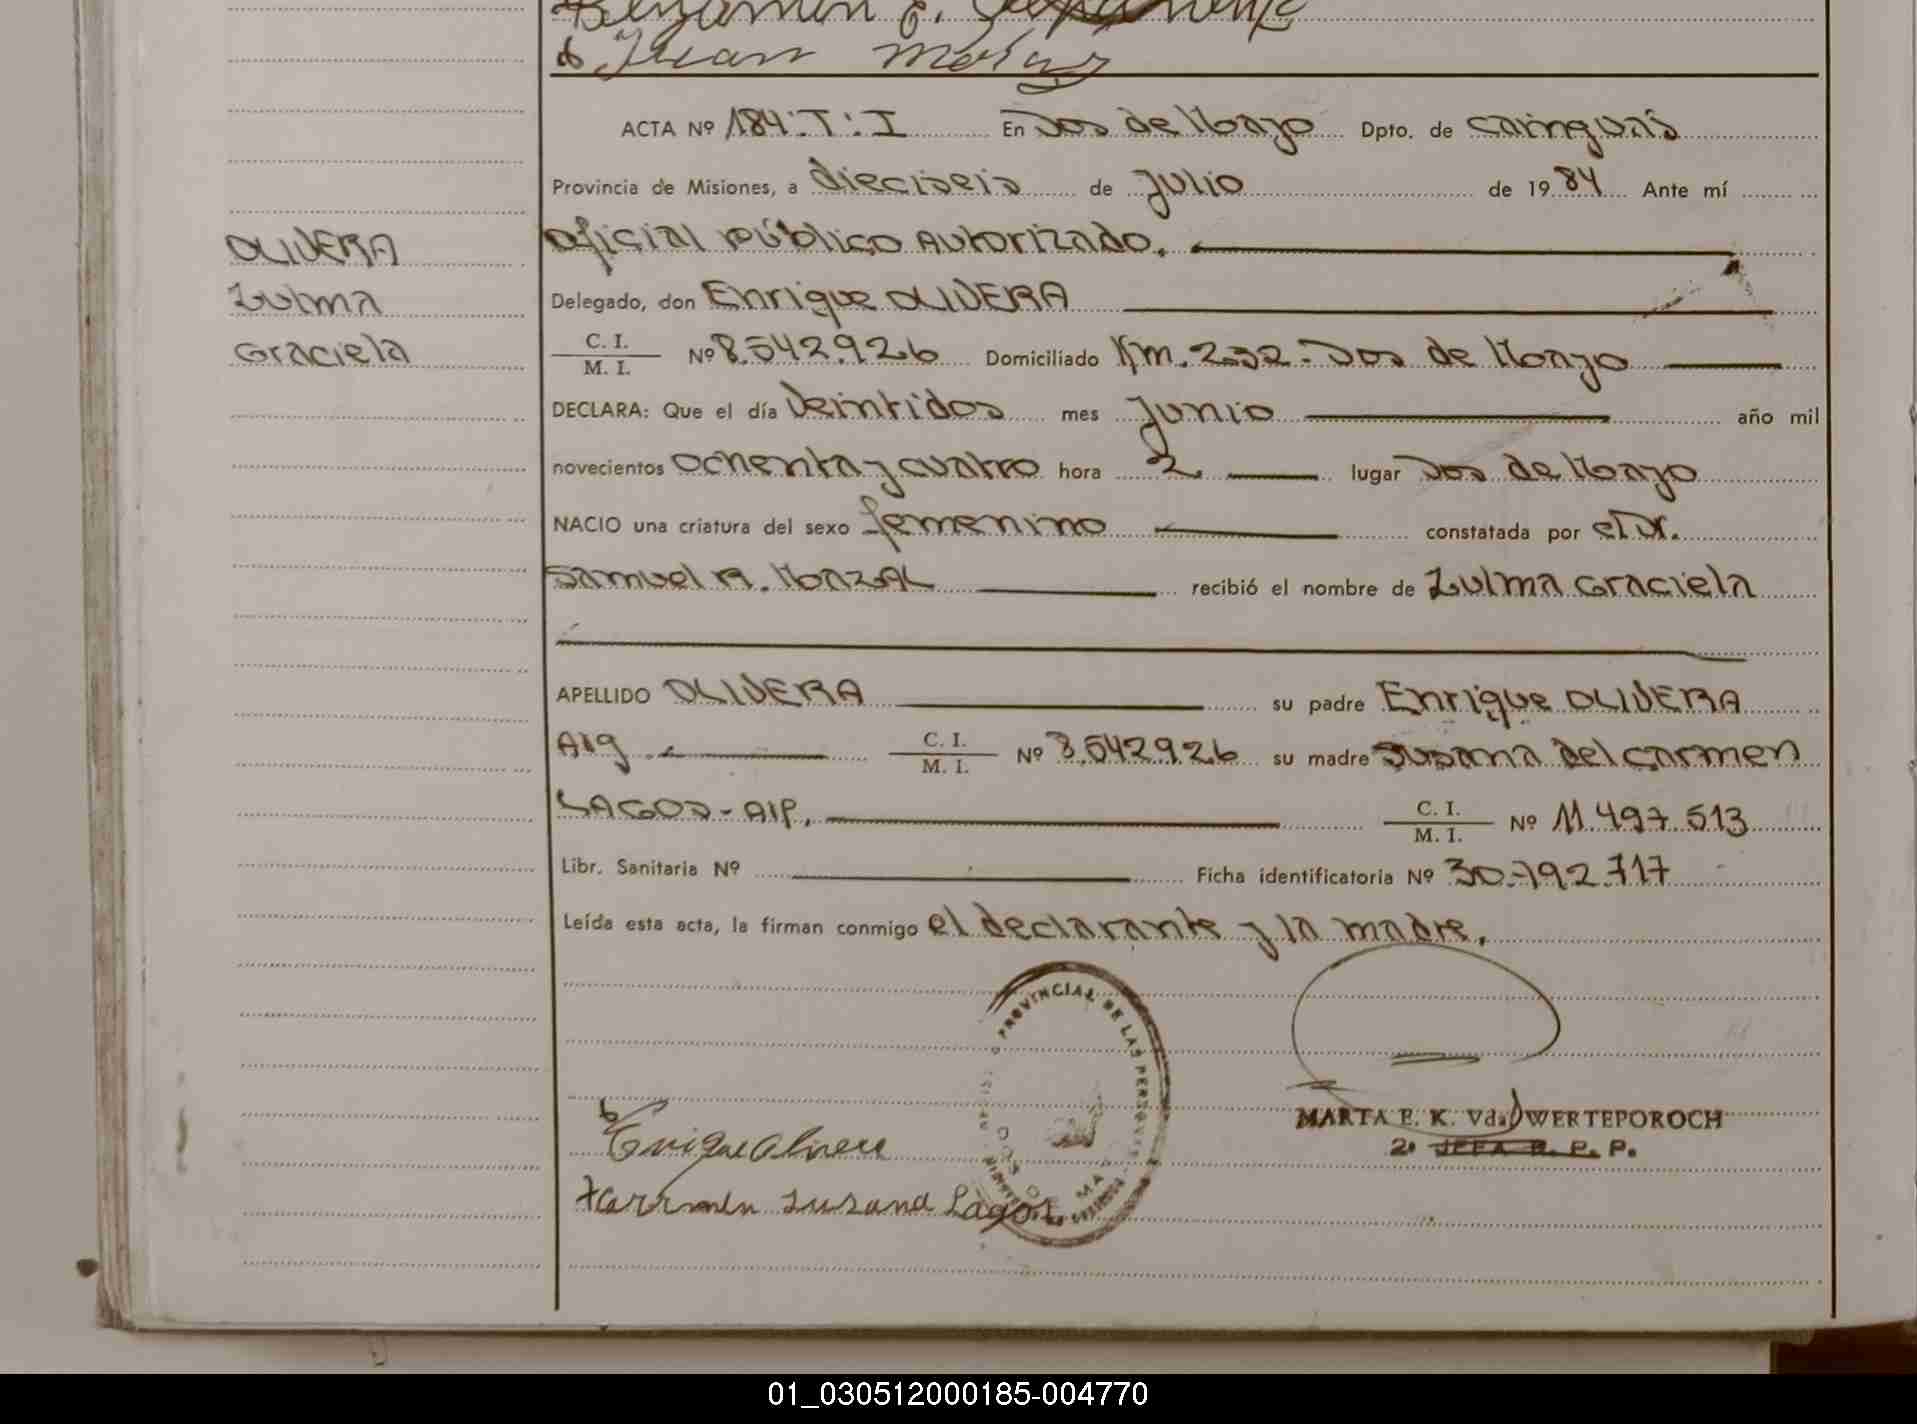 Benjamin E.
Juan
ACTA Nº 184: T: I En Dos de Mayo Dpto. de cainguás
Provincia de Misiones, a dieciseis de Julio de 1984 Ante mí
oficial público Autorizado.
OLIVERA
Zulma
Graciela
Delegado, don Enrique OLIVERA
C. I.
M. I.
Nº 8.542.926 Domiciliado Km. 232 - Dos de Mayo
DECLARA: Que el día veintidos mes Junio año mil
novecientos ochenta y cuatro hora 2. lugar Dos de Mayo
NACIO una criatura del sexo femenino constatada por el Dr.
Samuel A. MONZAL recibió el nombre de Zulma Graciela
APELLIDO OLIVERA su padre Enrique OLIVERA
Arg C. I.
M. I.
Nº 8.542.926 su madre Susana del Carmen
LAGOS - Arg. C. I.
M. I.
Nº 11.497.513
Libr. Sanitaria Nº Ficha identificatoria Nº 30.792.717
Leída esta acta, la firman conmigo el declarante y la madre.
PROVINCIAL DE LAS PERSONAS
Enrique Olivera
Carmen Susana Lagos
MARTA E. K. Vda. WERTEPOROCH
2º JEFA R. P. P.
01_030512000185-004770